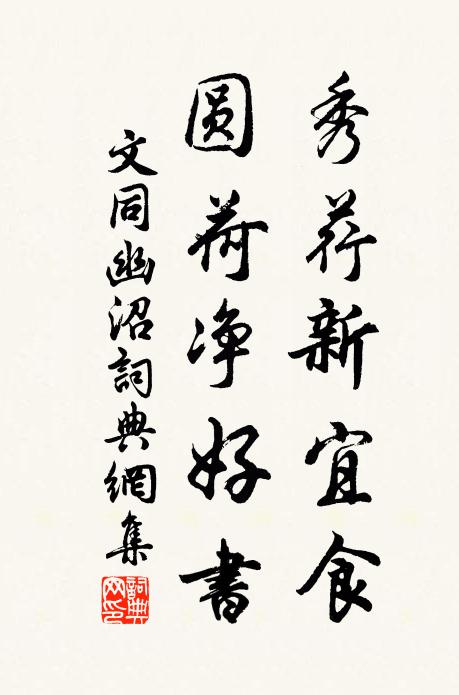 秀荇新宜食
圓荷净好書
文同幽沼詞典網集
詞典网印